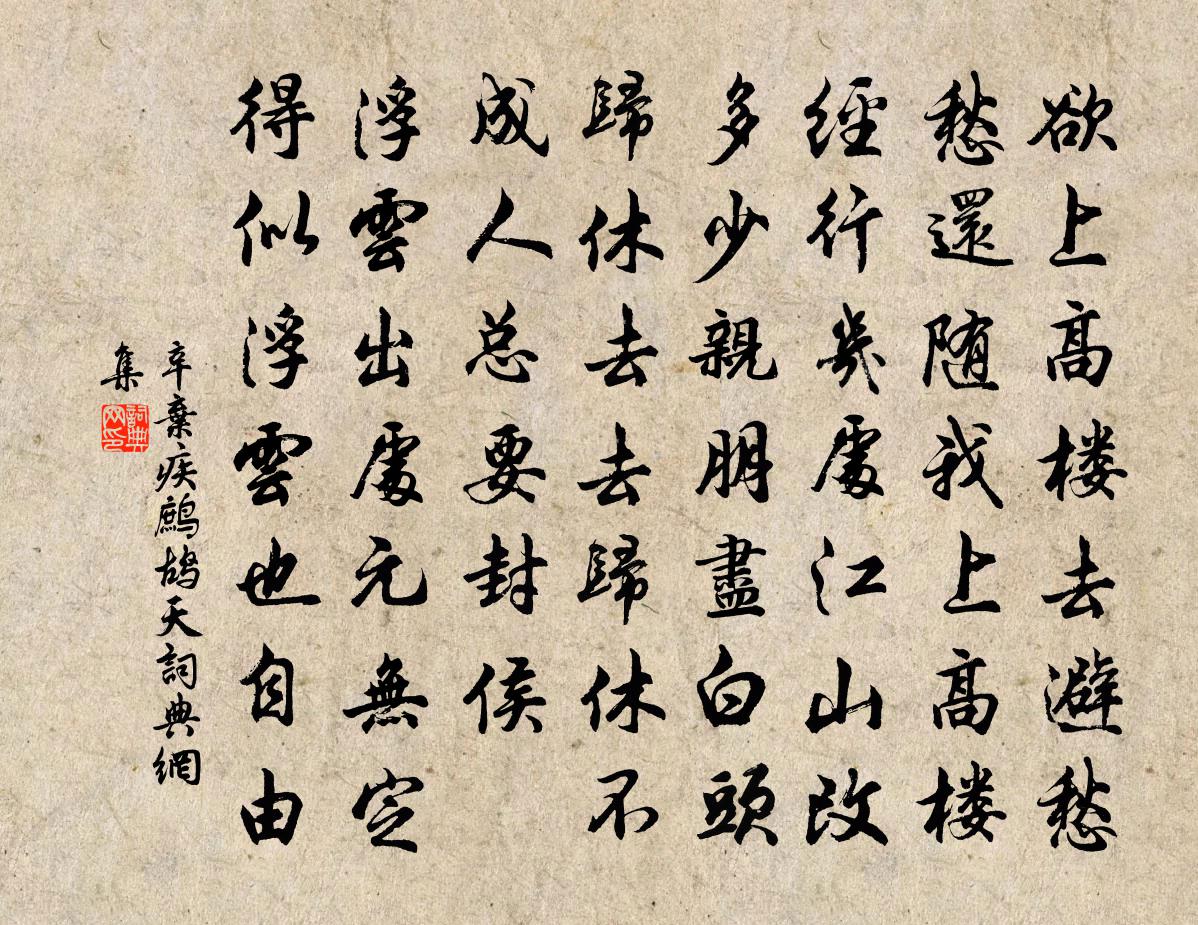 欲上高楼去避愁
愁還随我上高楼
經行幾處江山改
多少親朋盡白頭
歸休去去歸休不
成人总要封侯
浮雲出處元無定
得似浮雲也自由
辛棄疾鷓鴣天詞典網
集
詞典网印